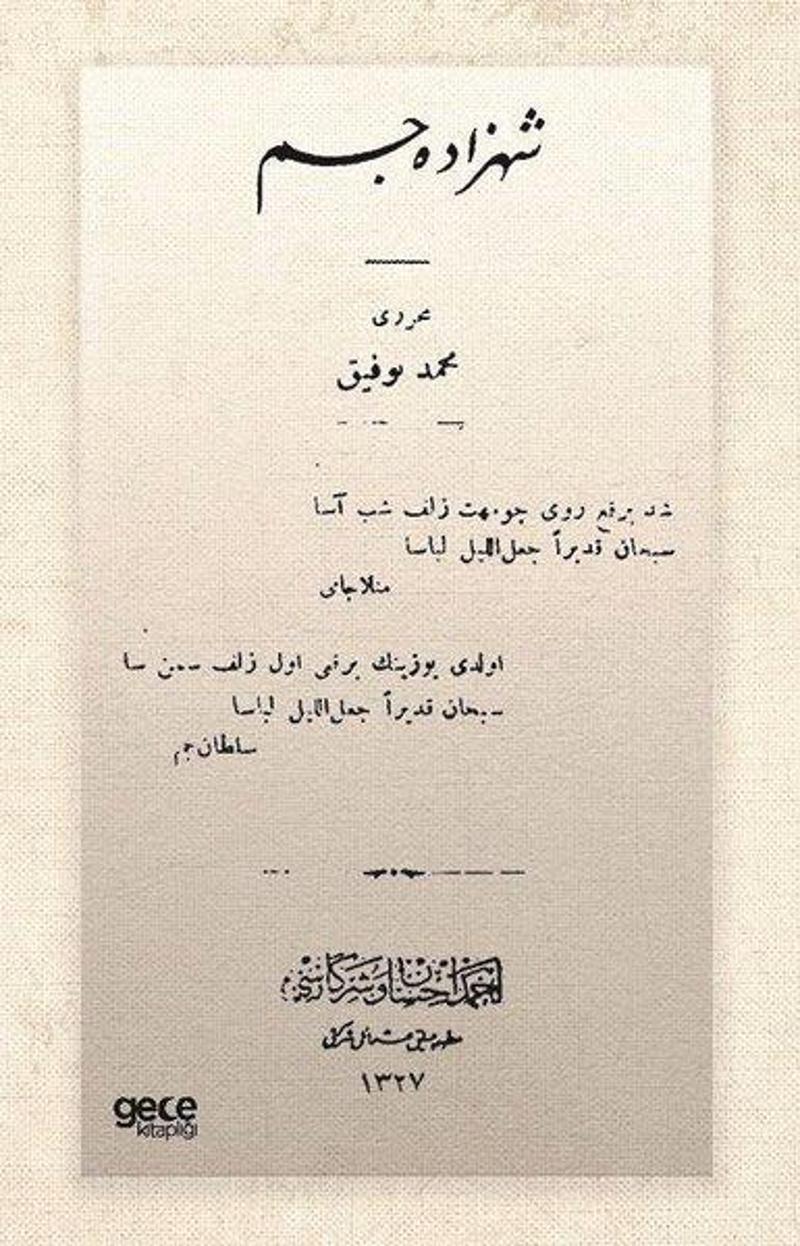 شهزاده جم
محرری
محمد توفیق
شد برقع روی چو مهت زلف شب آسا
سبحان قدیراً جعل اللیل لباسا
منلا جامی
اولدی یوزینك برقعی اول زلف سمن سا
سبحان قدیراً جعل اللیل لباسا
سلطان جم
احمد احسان و شرکاسی
۱۳۲۷
gece
kitaplığı